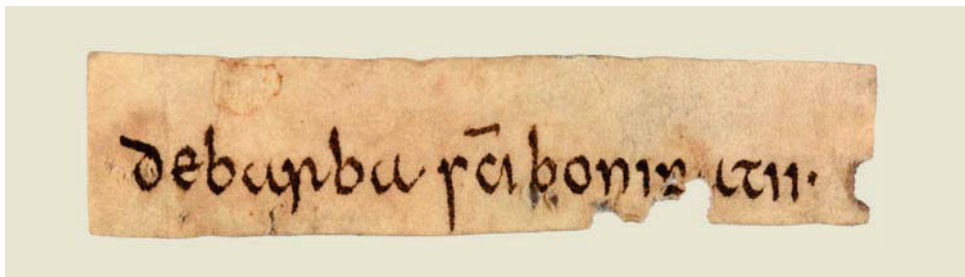 debarba sc̄i bonifatii·